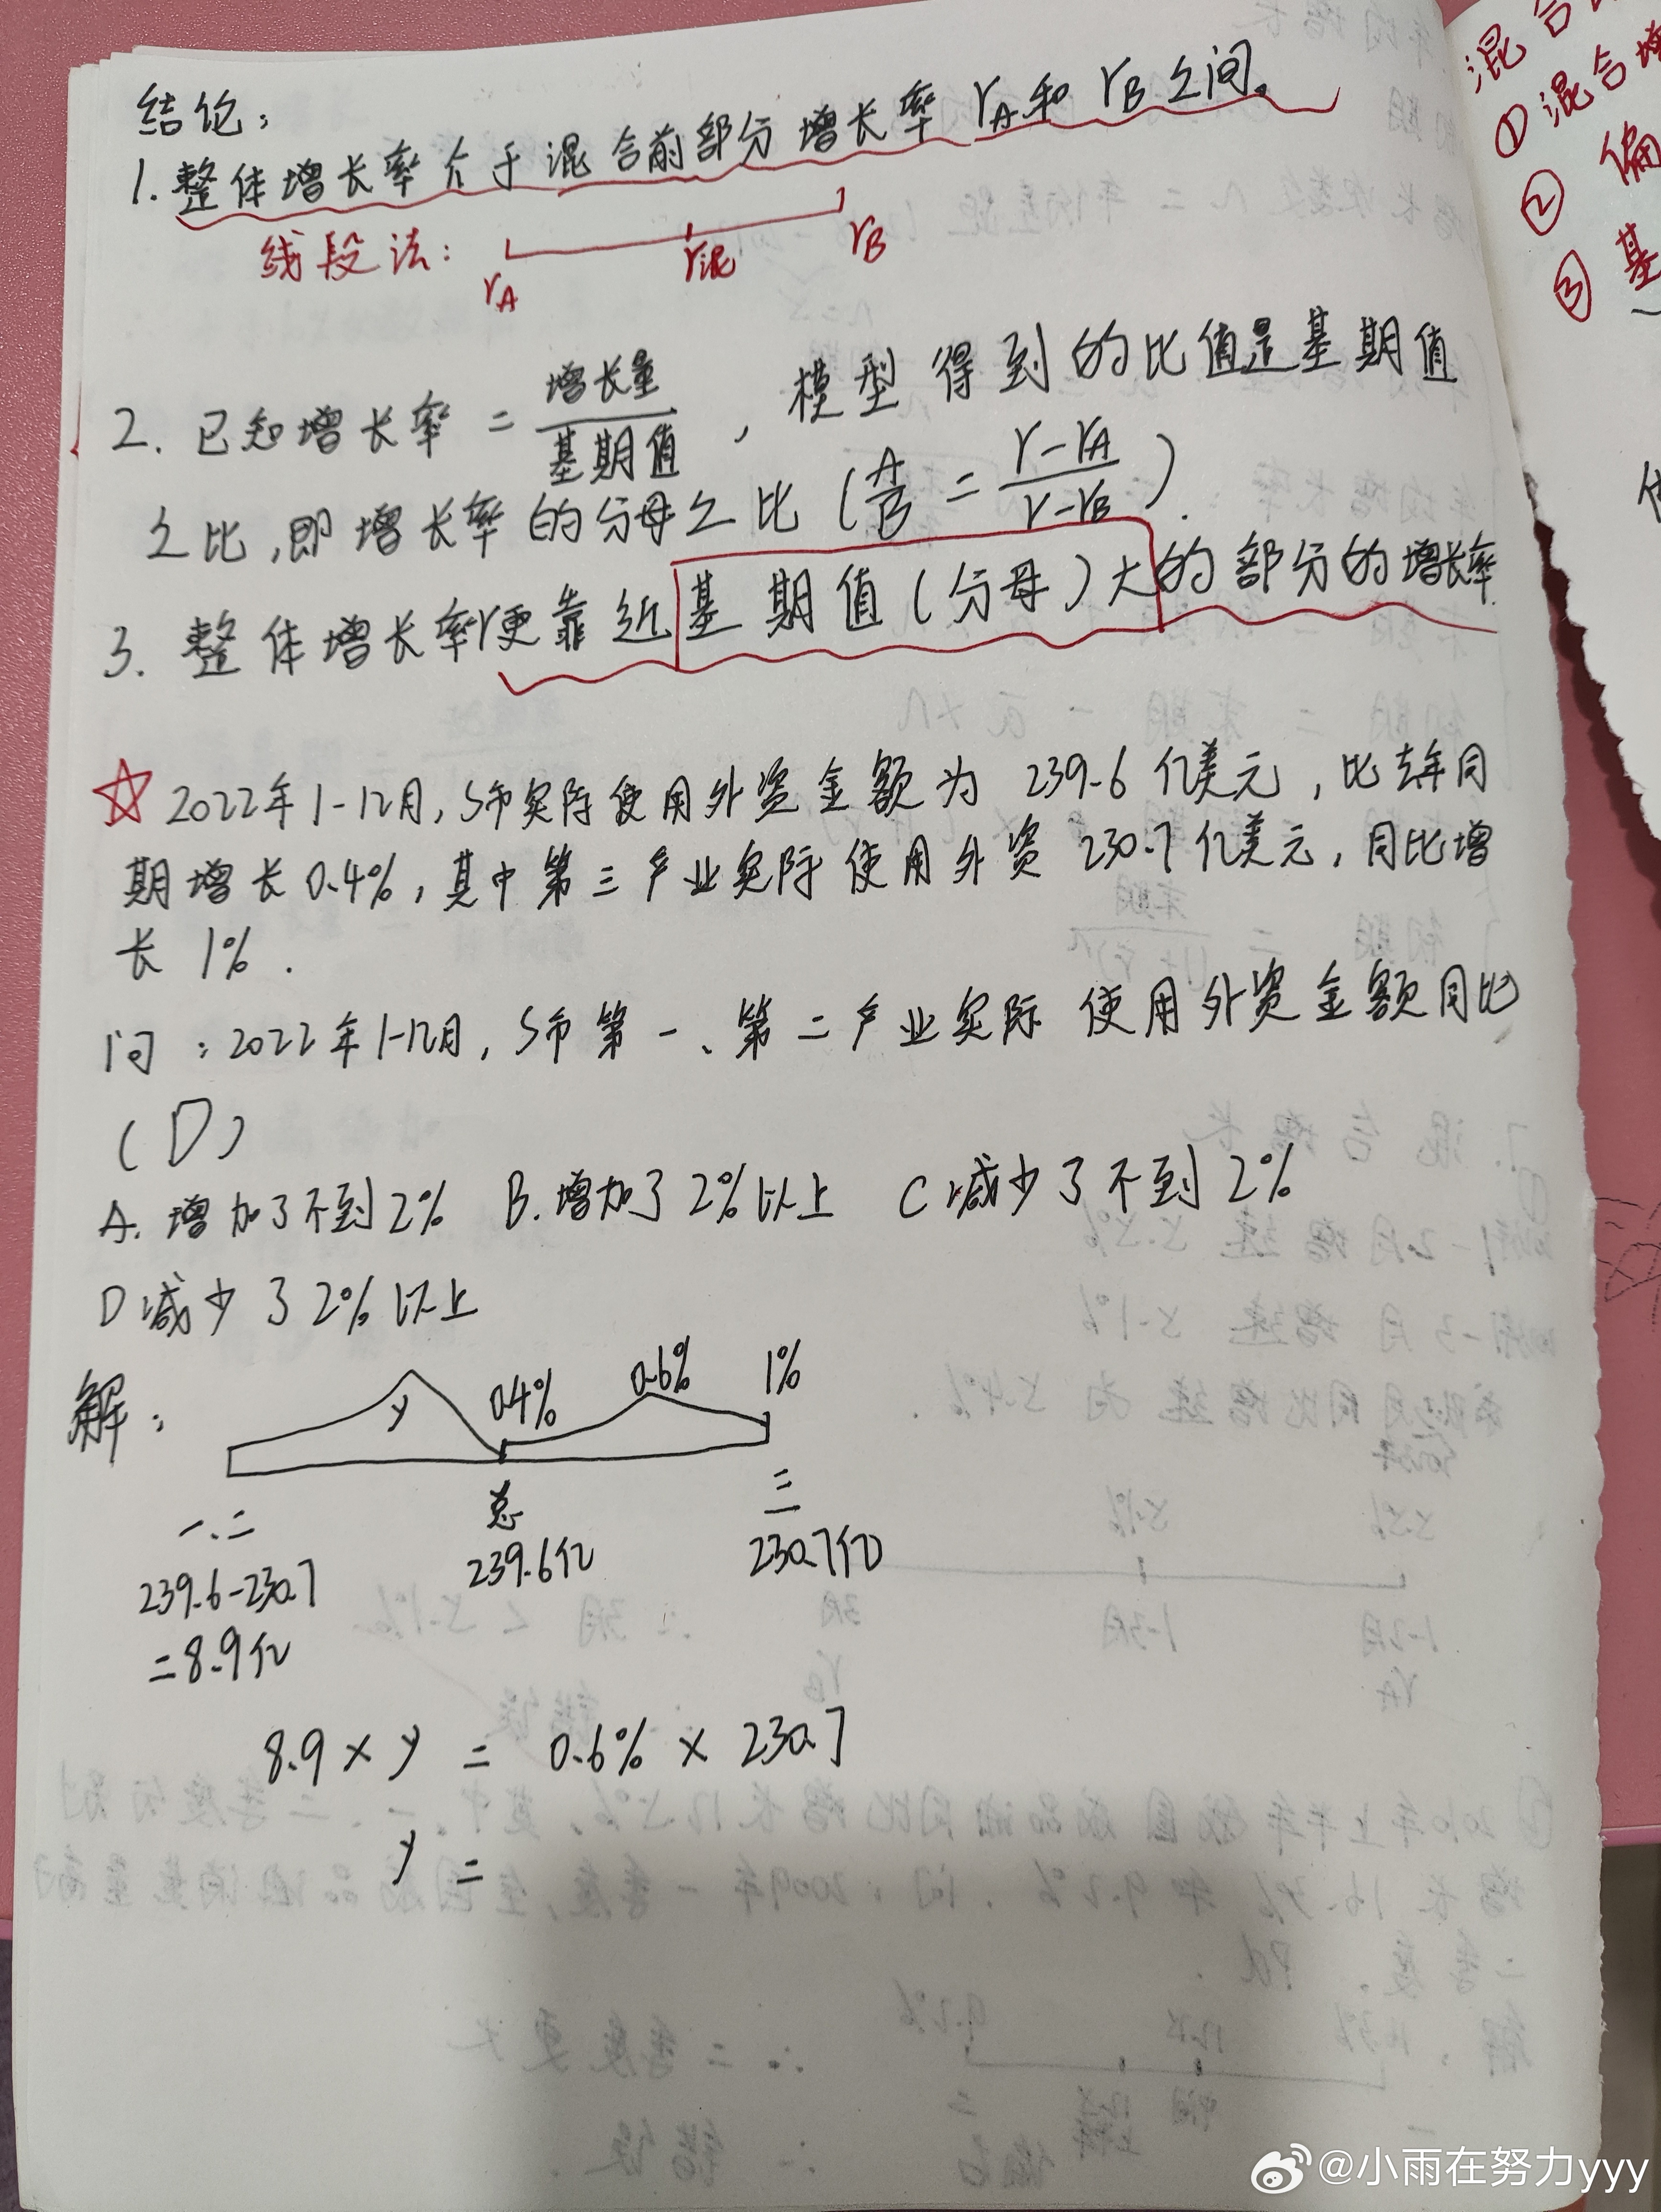 结论：
1. 整体增长率介于混合前部分增长率 rA 和 rB 之间。
线段法：
rA r混 rB
2. 已知增长率 = 增长量/基期值 ，模型得到的比值是基期值
之比，即增长率的分母之比 (A/B = r-rA/r-rB).
3. 整体增长率r更靠近基期值（分母）大的部分的增长率.
☆ 2022年1-12月，S市实际使用外资金额为 239.6 亿美元，比去年同
期增长0.4%，其中第三产业实际使用外资 230.7 亿美元，同比增
长 1% .
问：2022年1-12月，S市第一、第二产业实际使用外资金额同比
(D)
A. 增加了不到2% B. 增加了2%以上 C 减少了不到2%
D 减少了2%以上
解：
y 0.4% 0.6% 1%
一、二 总 三
239.6-230.7 239.6亿 230.7亿
=8.9亿
8.9 × y = 0.6% × 230.7
y =
混合
① 混合增
② 偏
③ 基
@小雨在努力yyy